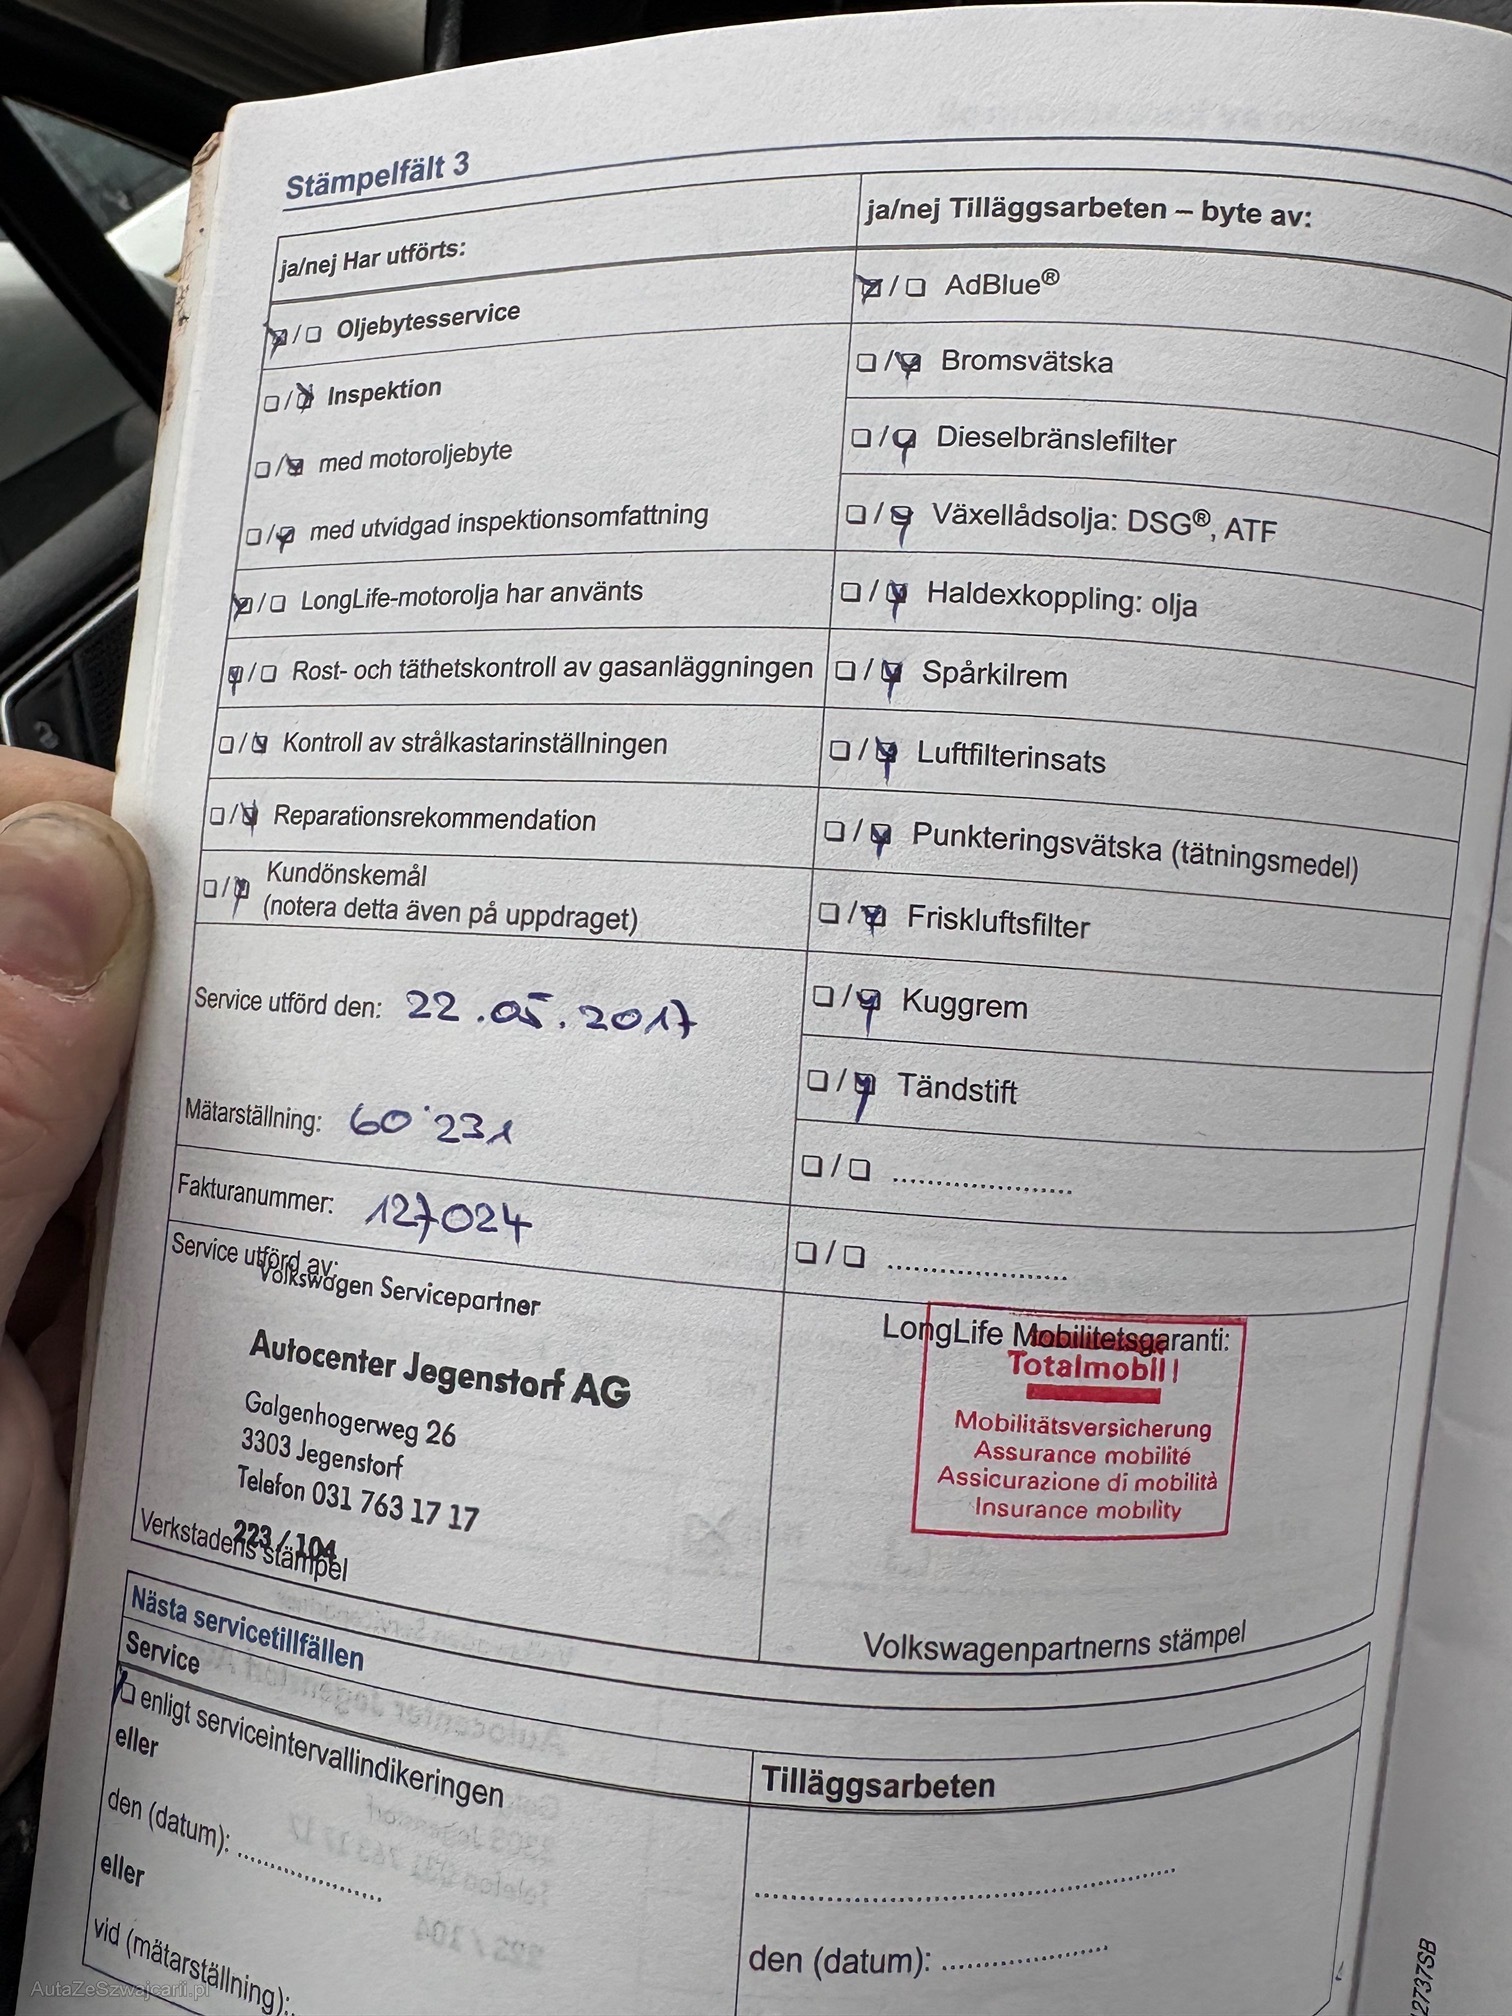 Stämpelfält 3
ja/nej Har utförts:
☒/☐ Oljebytesservice
☐/☒ Inspektion
☐/☒ med motoroljebyte
☐/☒ med utvidgad inspektionsomfattning
☒/☐ LongLife-motorolja har använts
☒/☐ Rost- och täthetskontroll av gasanläggningen
☐/☒ Kontroll av strålkastarinställningen
☐/☒ Reparationsrekommendation
☐/☒ Kundönskemål
(notera detta även på uppdraget)
Service utförd den: 22.05.2017
Mätarställning: 60'231
Fakturanummer: 127024
Service utförd av:
Volkswagen Servicepartner
Autocenter Jegenstorf AG
Galgenhogerweg 26
3303 Jegenstorf
Telefon 031 763 17 17
223 / 104
Verkstadens stämpel
ja/nej Tilläggsarbeten – byte av:
☒/☐ AdBlue®
☐/☒ Bromsvätska
☐/☒ Dieselbränslefilter
☐/☒ Växellådsolja: DSG®, ATF
☐/☒ Haldexkoppling: olja
☐/☒ Spårkilrem
☐/☒ Luftfilterinsats
☐/☒ Punkteringsvätska (tätningsmedel)
☐/☒ Friskluftsfilter
☐/☒ Kuggrem
☐/☒ Tändstift
☐/☐ ....................
☐/☐ ....................
LongLife Mobilitetsgaranti:
Totalmobil!
Mobilitätsversicherung
Assurance mobilité
Assicurazione di mobilità
Insurance mobility
Volkswagenpartnerns stämpel
Nästa servicetillfällen
Service
☒ enligt serviceintervallindikeringen
eller
den (datum): ....................
eller
vid (mätarställning):
Tilläggsarbeten
....................
den (datum): ....................
2737SB
AutaZeSzwajcarii.pl